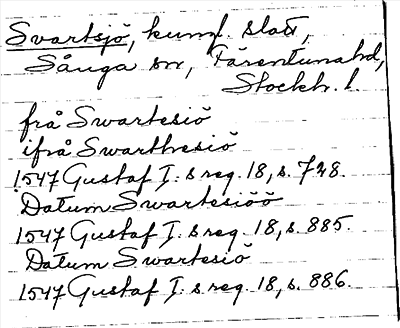 Svartsjö, kungl. slott,
Sånga sn, Färentuna hd,
Stockh. l.
frå Swartesiö
ifrå Swarthesiö
1547 Gustaf I:s reg. 18, s. 728.
Datum Swartesiöö
1547 Gustaf I:s reg. 18, s. 885.
Datum Swartesiö
1547 Gustaf I:s reg. 18, s. 886.